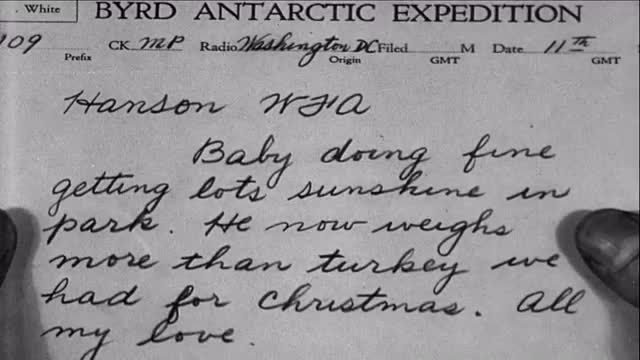 . White
BYRD ANTARCTIC EXPEDITION
109 CK MP Radio Washington DC Filed M Date 11th
Prefix Origin GMT GMT
Hanson WFA
Baby doing fine
getting lots sunshine in
park. He now weighs
more than turkey we
had for Christmas. All
my love.